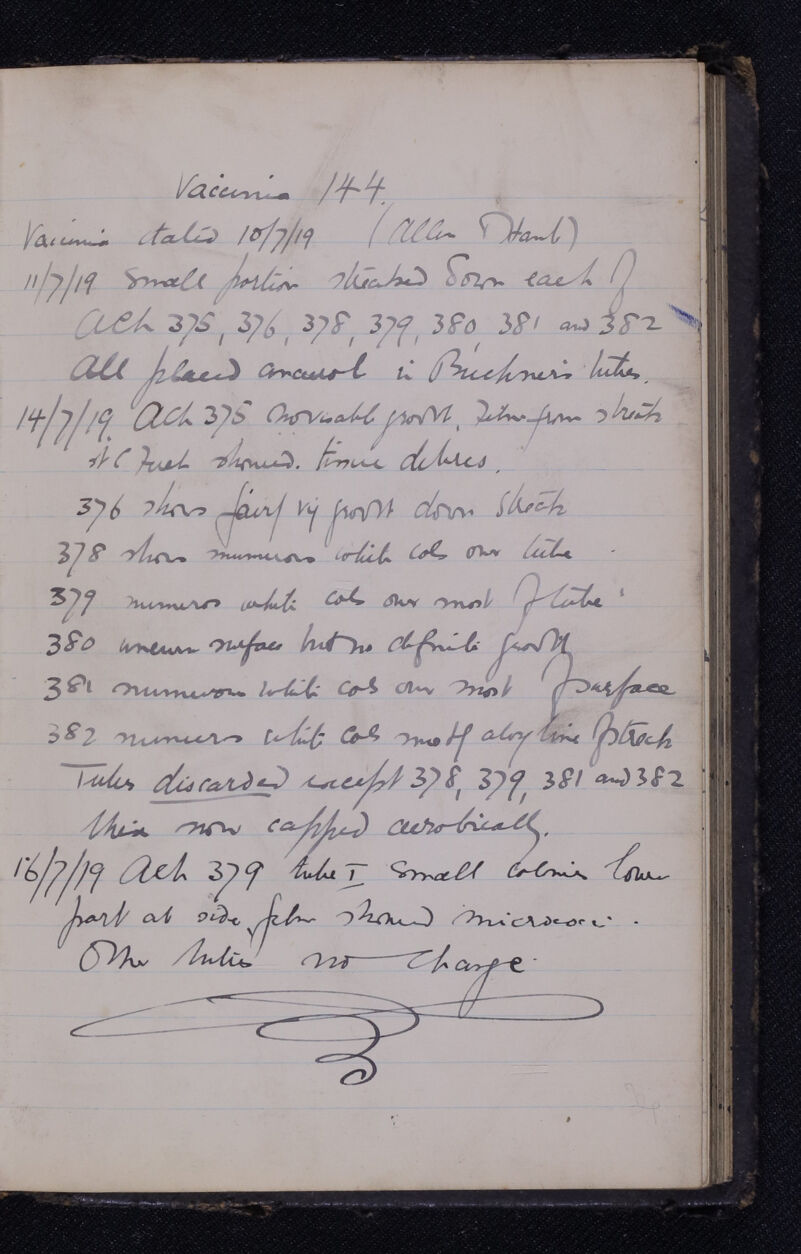 Vaccinia 144.
Vaccinia dated 10/7/19 (Allen & Hanb)
11/7/19 Small portion streaked down each of
Ach 375, 376, 378, 379, 380, 381 and 382
All placed anaerob in Buchner's tubes.
14/7/19. Ach 375 no visable growth. Film from streak
showed. tissue debres.
376 shows fairly growth down streak
378 shows numerous white cols over tube
379 numeros white cols over most of tube
380 uneven surface but no definite growth
381 numerous white cols over most of surface
382 numeros white cols mostly along line of streak
Tubes discarded except 378, 379, 381 and 382
these now capped aerobically.
16/7/19 Ach 379 tube I small colonies lower
part at side, film showed micrococci.
Other tubes no change